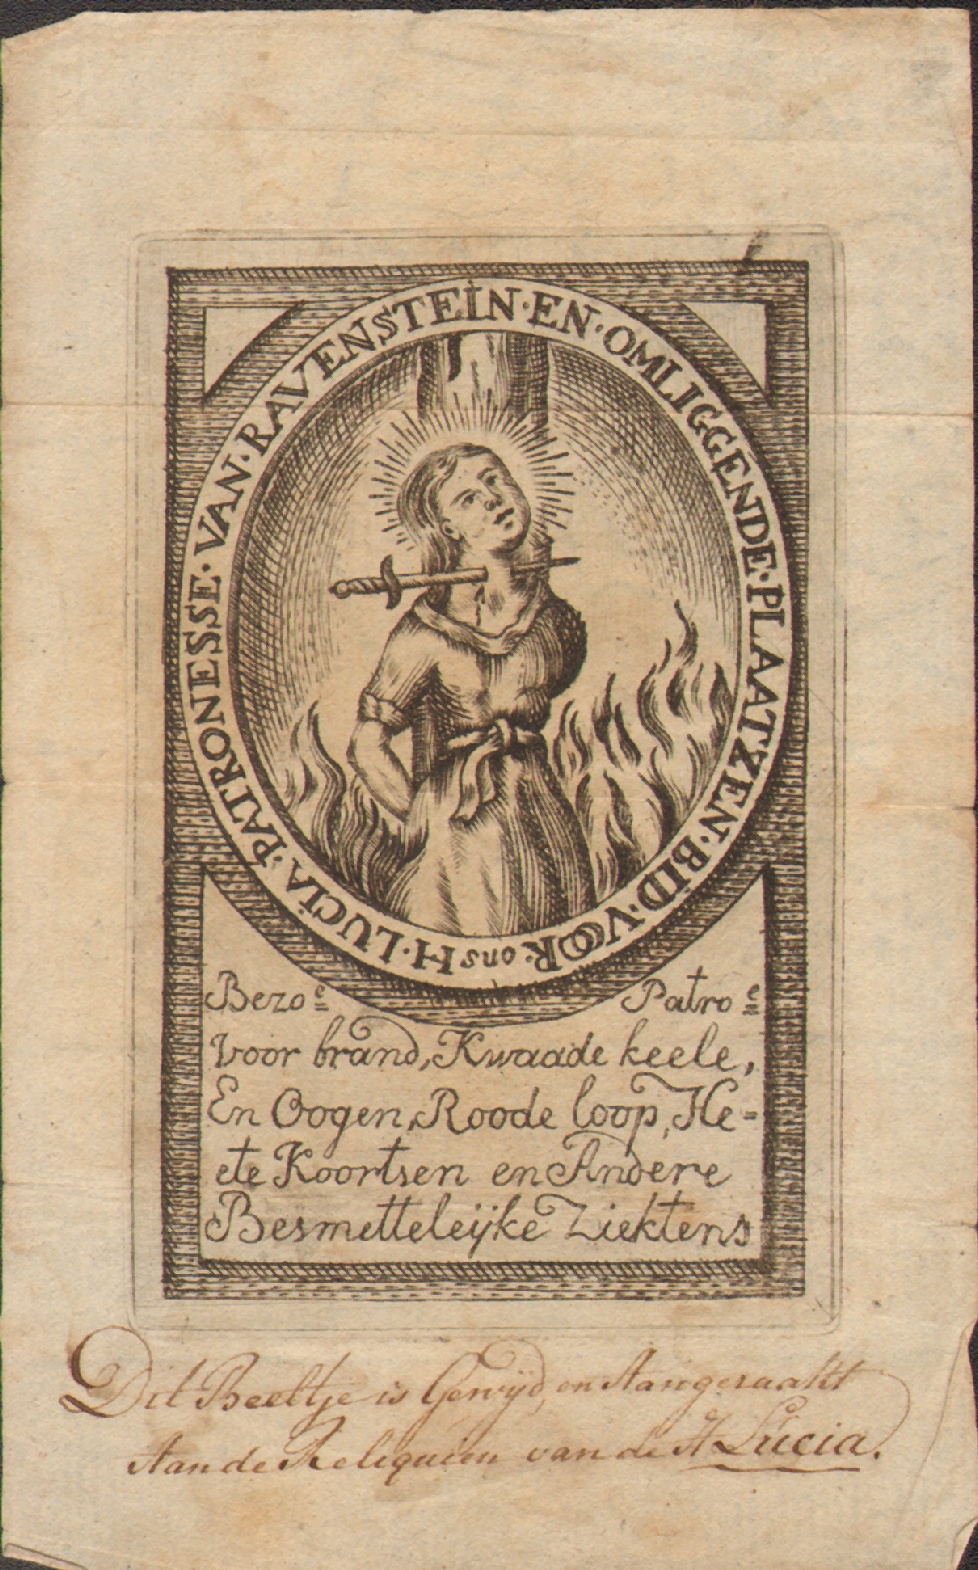 H·LUCIA·PATRONESSE·VAN·RAVENSTEIN·EN·OMLIGGENDE·PLAATZEN·BID·VOOR·ons
Bezoᵉ Patroᵉ
Voor brand, Kwaade keele,
En Oogen, Roode loop, He=
ete Koortsen en Andere
Besmetteleijke Ziektens
Dit Beeltje is Gewijd, en Aangeraakt
Aan de Reliquien van de H Lucia.